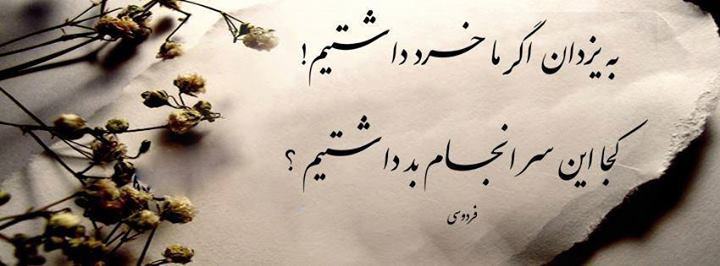 به یزدان اگر ما خرد داشتیم!
کجا این سرانجام بد داشتیم؟
فردوسی